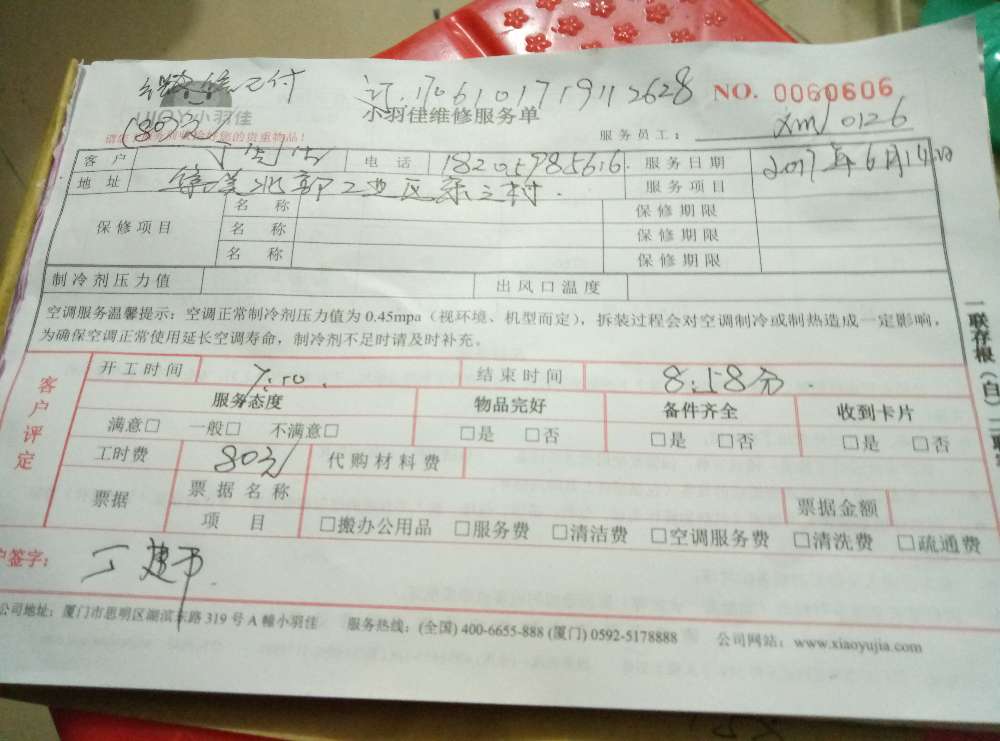 微信已付
订.1706101719112628
NO. 0060606
小羽佳
180元
小羽佳维修服务单
您的贵重物品!
服务员工: xm 0126
客户 电话 18205985616. 服务日期 2017年6月14日
地址 集美北部工业区东三村. 服务项目
保修项目 名称 保修期限
名称 保修期限
名称 保修期限
制冷剂压力值 出风口温度
空调服务温馨提示:空调正常制冷剂压力值为 0.45mpa(视环境、机型而定),拆装过程会对空调制冷或制热造成一定影响,
为确保空调正常使用延长空调寿命,制冷剂不足时请及时补充。
客户评定
开工时间 7:50. 结束时间 8:58分.
服务态度 物品完好 备件齐全 收到卡片
满意□ 一般□ 不满意□ □是 □否 □是 □否 □是 □否
工时费 80元 代购材料费
票据 票据名称 票据金额
项目 □搬办公用品 □服务费 □清洁费 □空调服务费 □清洗费 □疏通费
户签字: 丁建
公司地址:厦门市思明区湖滨东路 319 号 A 幢小羽佳 服务热线:(全国) 400-6655-888 (厦门) 0592-5178888 公司网站:www.xiaoyujia.com
一联存根(白)二联